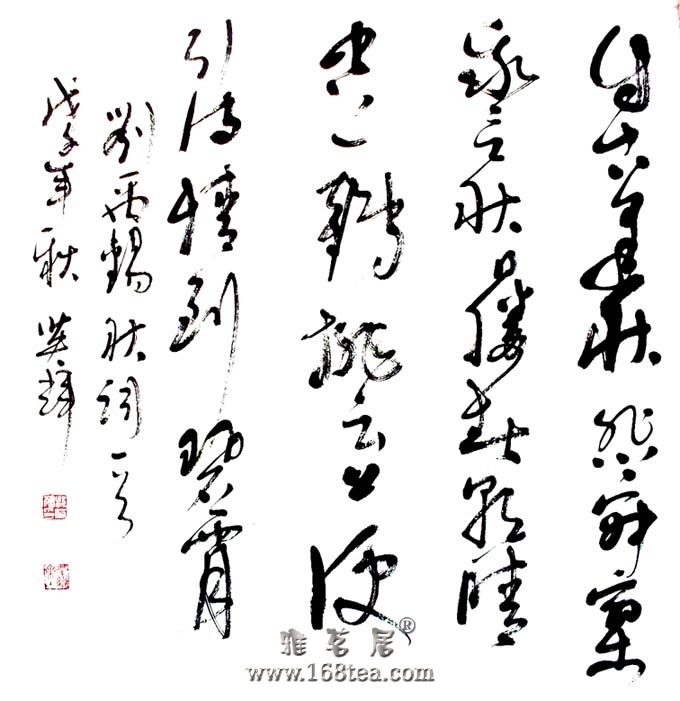 自古逢秋悲寂寥
我言秋日勝春朝晴
空一鶴排云上便
引詩情到碧霄
劉禹錫秋詞一首
戊子年秋
雅茗居®
www.168tea.com